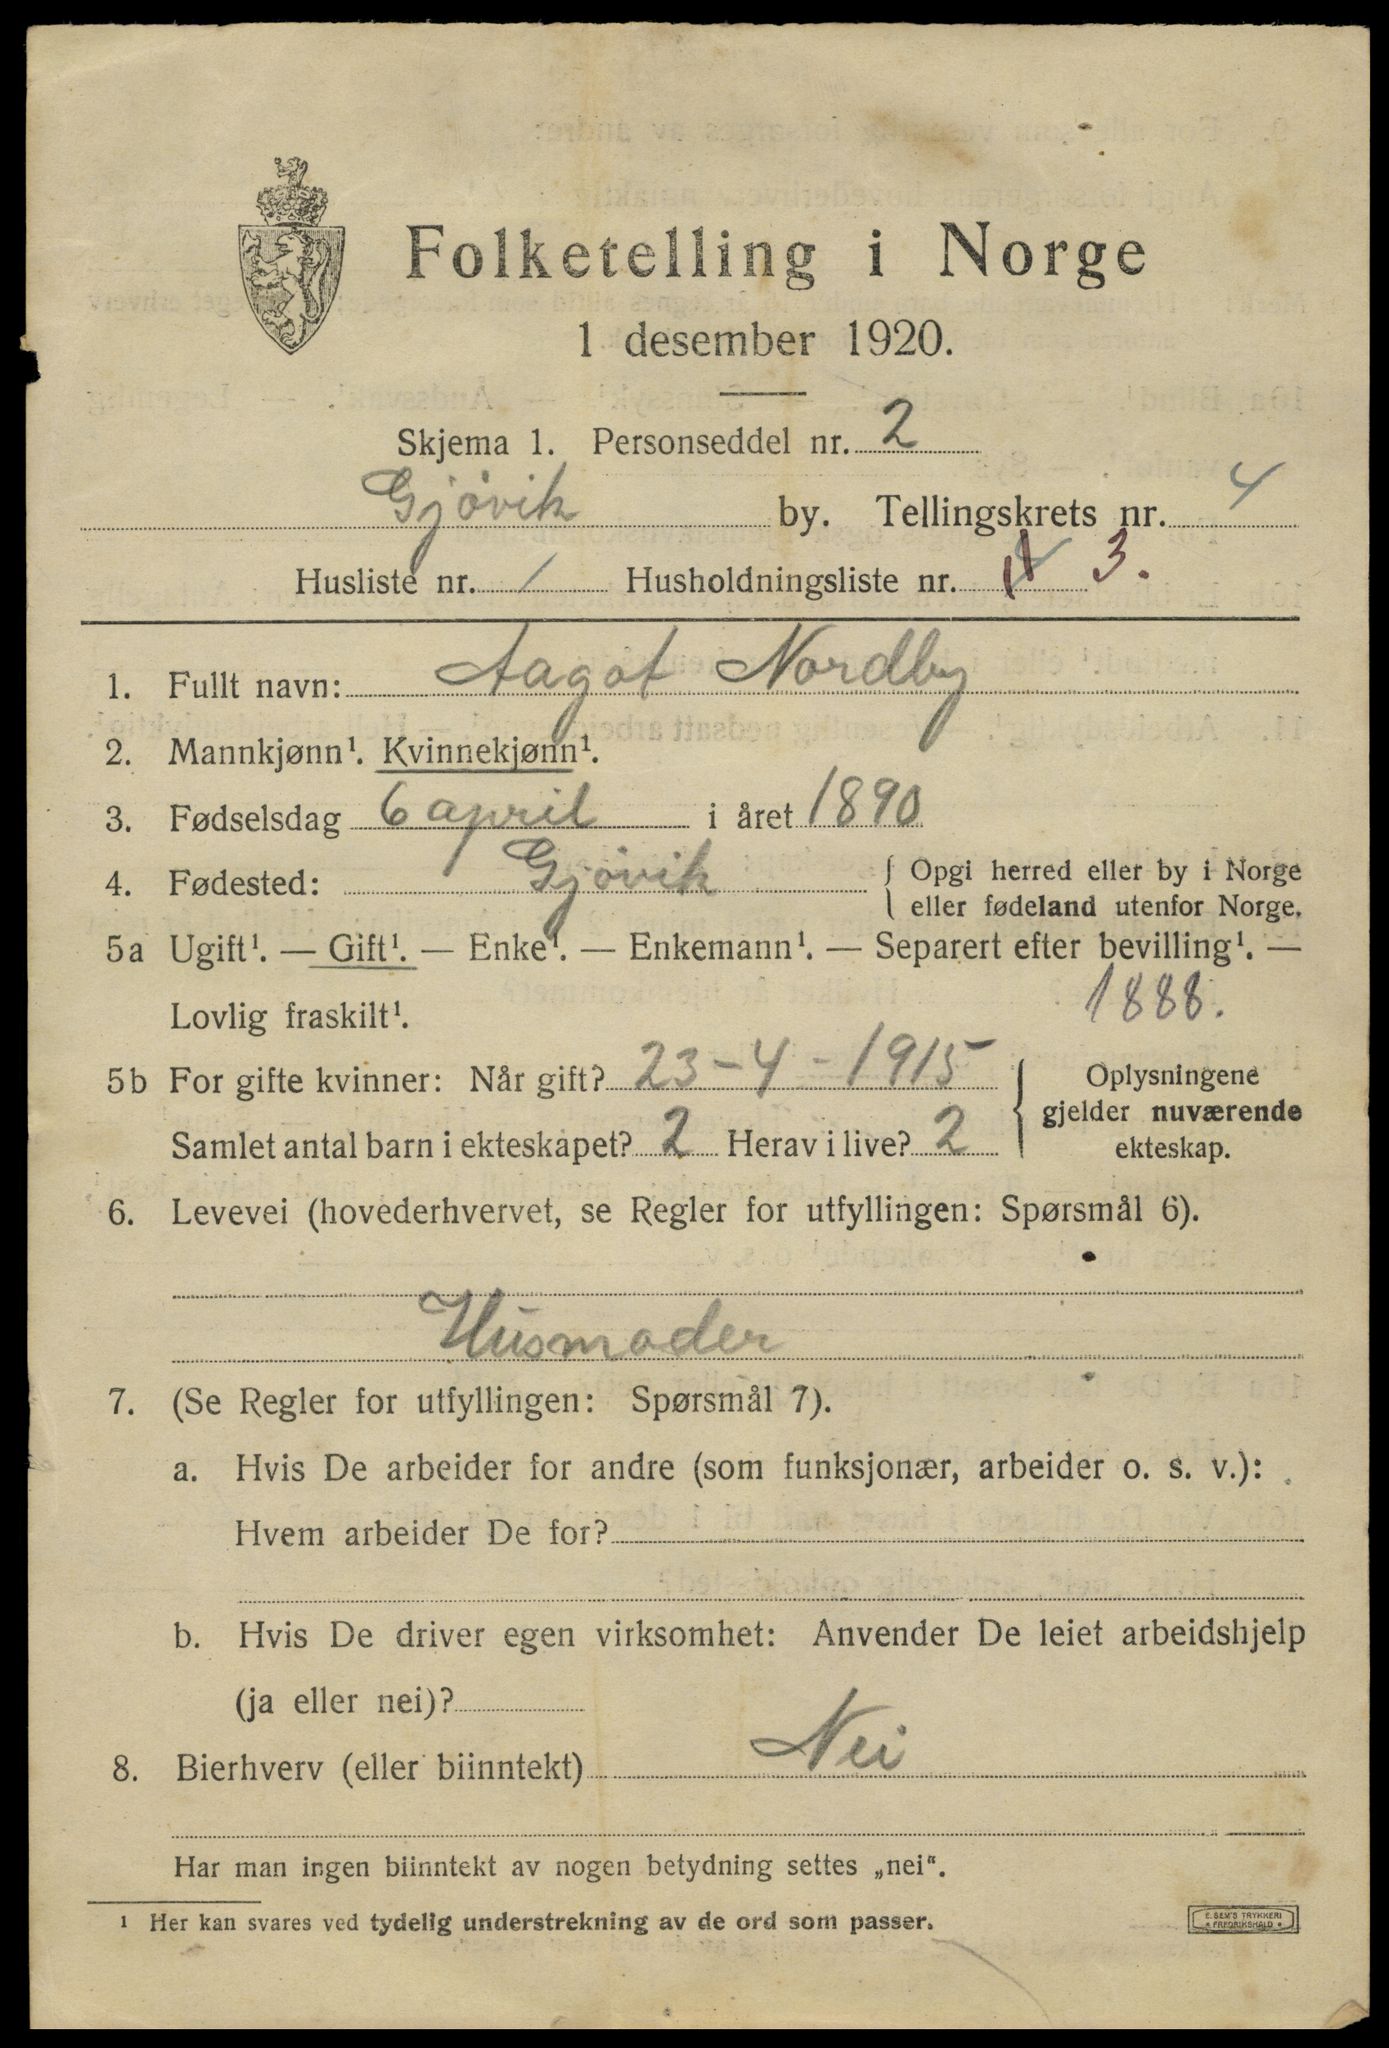 Folketelling i Norge
1 desember 1920.
Skjema 1. Personseddel nr. 2
Gjövik by. Tellingskrets nr. 4
Husliste nr. 1 Husholdningsliste nr. 3.
1. Fullt navn: Aagot Nordby
2. Mannkjønn¹. Kvinnekjønn¹.
3. Fødselsdag 6 april i året 1890
4. Fødested: Gjövik { Opgi herred eller by i Norge
eller fødeland utenfor Norge.
5a Ugift¹. — Gift¹. — Enke¹. — Enkemann¹. — Separert efter bevilling¹. —
Lovlig fraskilt¹. 1888.
5b For gifte kvinner: Når gift? 23-4-1915
Samlet antal barn i ekteskapet? 2 Herav i live? 2
{ Oplysningene
gjelder nuværende
ekteskap.
6. Levevei (hovederhvervet, se Regler for utfyllingen: Spørsmål 6).
Husmoder
7. (Se Regler for utfyllingen: Spørsmål 7).
a. Hvis De arbeider for andre (som funksjonær, arbeider o. s. v.):
Hvem arbeider De for?
b. Hvis De driver egen virksomhet: Anvender De leiet arbeidshjelp
(ja eller nei)?
8. Bierhverv (eller biinntekt) Nei
Har man ingen biinntekt av nogen betydning settes „nei“.
¹ Her kan svares ved tydelig understrekning av de ord som passer.
E. SEM'S TRYKKERI
* FREDRIKSHALD *